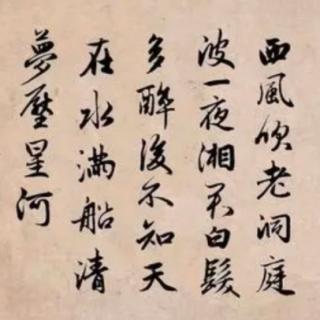 西風吹老洞庭
波一夜湘君白髮
多醉後不知天
在水滿船清
夢壓星河